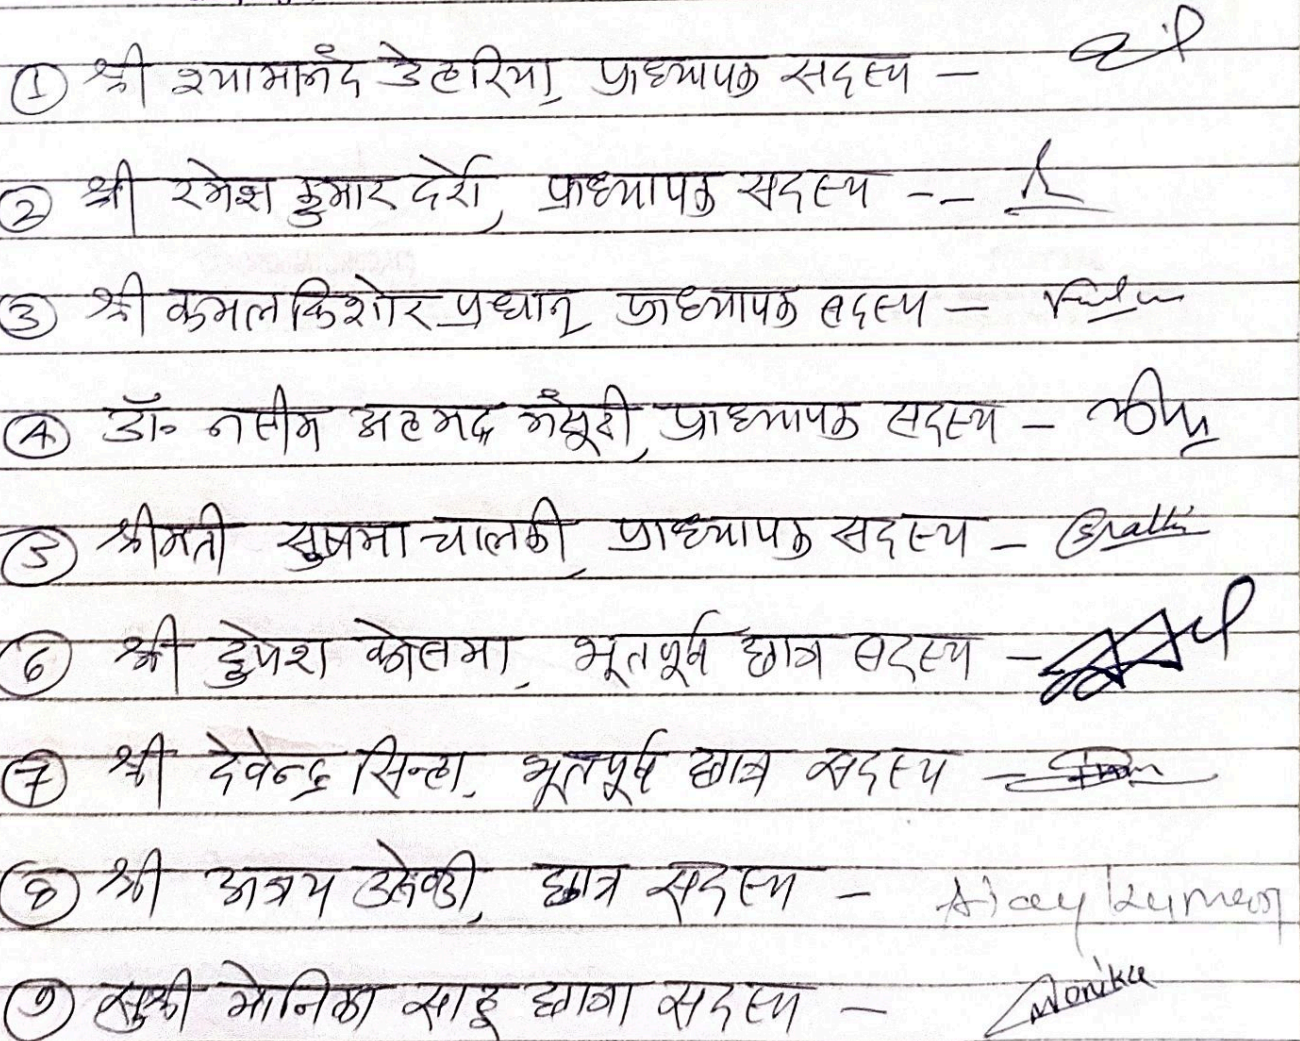 ① श्री श्यामानंद डेहरिया, प्राध्यापक सदस्य –
② श्री रमेश कुमार दर्रो, प्राध्यापक सदस्य --
③ श्री कमल किशोर प्रधान, प्राध्यापक सदस्य –
④ डॉ॰ नसीम अहमद मंसूरी, प्राध्यापक सदस्य –
⑤ श्रीमती सुषमा चालकी, प्राध्यापक सदस्य –
⑥ श्री डुपेश कोसमा, भूतपूर्व छात्र सदस्य –
⑦ श्री देवेन्द्र सिन्हा, भूतपूर्व छात्र सदस्य –
⑧ श्री अजय उसेण्डी, छात्र सदस्य – Ajay kumar
⑨ सुश्री मोनिका साहू छात्रा सदस्य – Monika